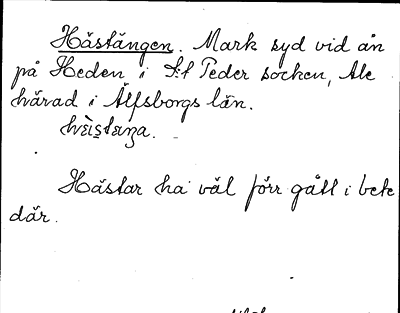 Hästängen. Mark syd vid ån
på Heden i S:t Peder socken, Ale
härad i Älfsborgs län.
Hästar ha väl förr gått i bete
där.